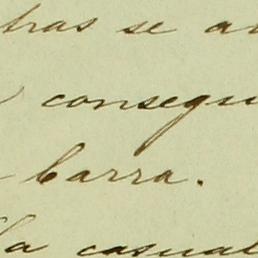 tras se a
consegu
barra.
la casual